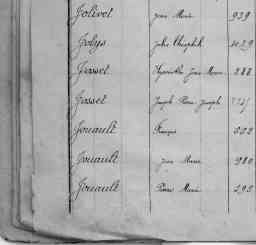 Jolivet Jean Marie 939
Jolys Julie Théophile
Josset Hyacinthe Jean Marie 288
Josset Joseph Pierre Joseph
Jouault François 552
Jouault Jean Marie 980
Jouault Pierre Marie 595